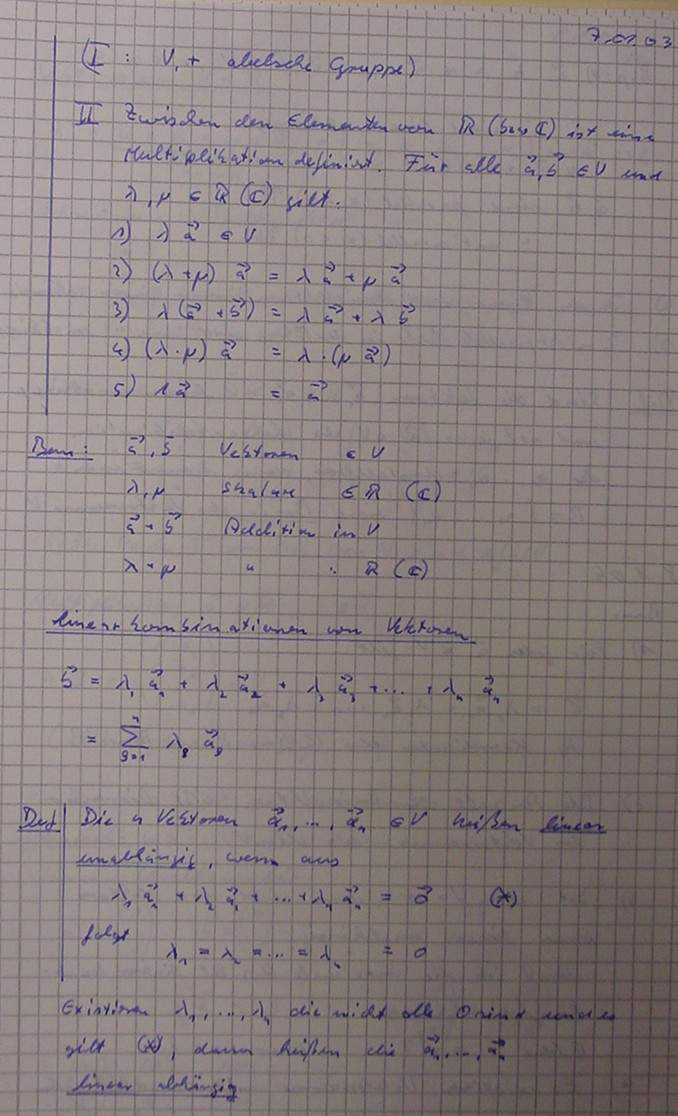 7.01.03
(I : V, + abelsche Gruppe)
II Zwischen den Elementen von ℝ (bzw ℂ) ist eine
Multiplikation definiert. Für alle a⃗, b⃗ ∈ V und
λ, μ ∈ ℝ (ℂ) gilt:
1) λ a⃗ ∈ V
2) (λ + μ) a⃗ = λ a⃗ + μ a⃗
3) λ (a⃗ + b⃗) = λ a⃗ + λ b⃗
4) (λ · μ) a⃗ = λ · (μ a⃗)
5) 1 a⃗ = a⃗
Bem: a⃗, b⃗ Vektoren ∈ V
λ, μ Skalare ∈ ℝ (ℂ)
a⃗ + b⃗ Addition in V
λ + μ " " ℝ (ℂ)
Linearkombinationen von Vektoren
b⃗ = λ₁ a⃗₁ + λ₂ a⃗₂ + λ₃ a⃗₃ + ... + λₙ a⃗ₙ
= ∑ⁿ_{g=1} λ_g a⃗_g
Def Die n Vektoren a⃗₁, ..., a⃗ₙ ∈ V heißen linear
unabhängig, wenn aus
λ₁ a⃗₁ + λ₂ a⃗₂ + ... + λₙ a⃗ₙ = 0⃗ (*)
folgt
λ₁ = λ₂ = ... = λₙ = 0
Existieren λ₁, ..., λₙ die nicht alle 0 sind und es
gilt (*), dann heißen die a⃗₁, ..., a⃗ₙ
linear abhängig